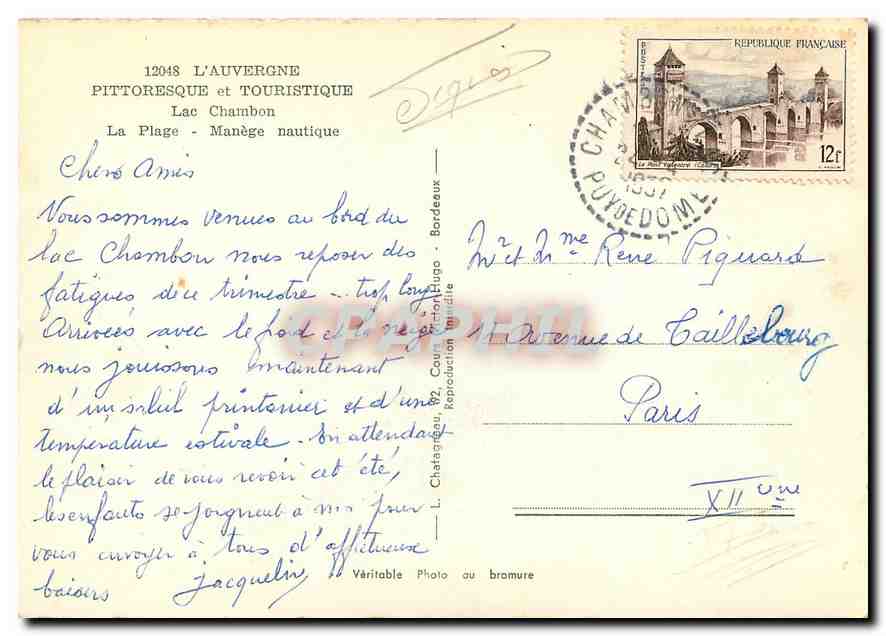 12048 L'AUVERGNE
PITTORESQUE et TOURISTIQUE
Lac Chambon
La Plage - Manège nautique
Chers Amis
Nous sommes venues au bord du
lac Chambon nous reposer des
fatigues de ce trimestre - trop long.
Arrivées avec le froid et la neige
nous jouissons maintenant
d'un soleil printanier et d'une
température estivale - En attendant
le plaisir de vous revoir cet été,
les enfants se joignent à moi pour
vous envoyer à tous d'affectueux
baisers Jacqueline
L. Chatagneau, 92, Cours Victor-Hugo - Bordeaux
Reproduction interdite
Véritable Photo au bromure
REPUBLIQUE FRANÇAISE
POSTES
Le Pont Valentré (Cahors)
12f
CHAMBON
1957
PUY DE DOME
Mr et Mme René Piquard
11 Avenue de Taillebourg
Paris
XII
CPAPHIL